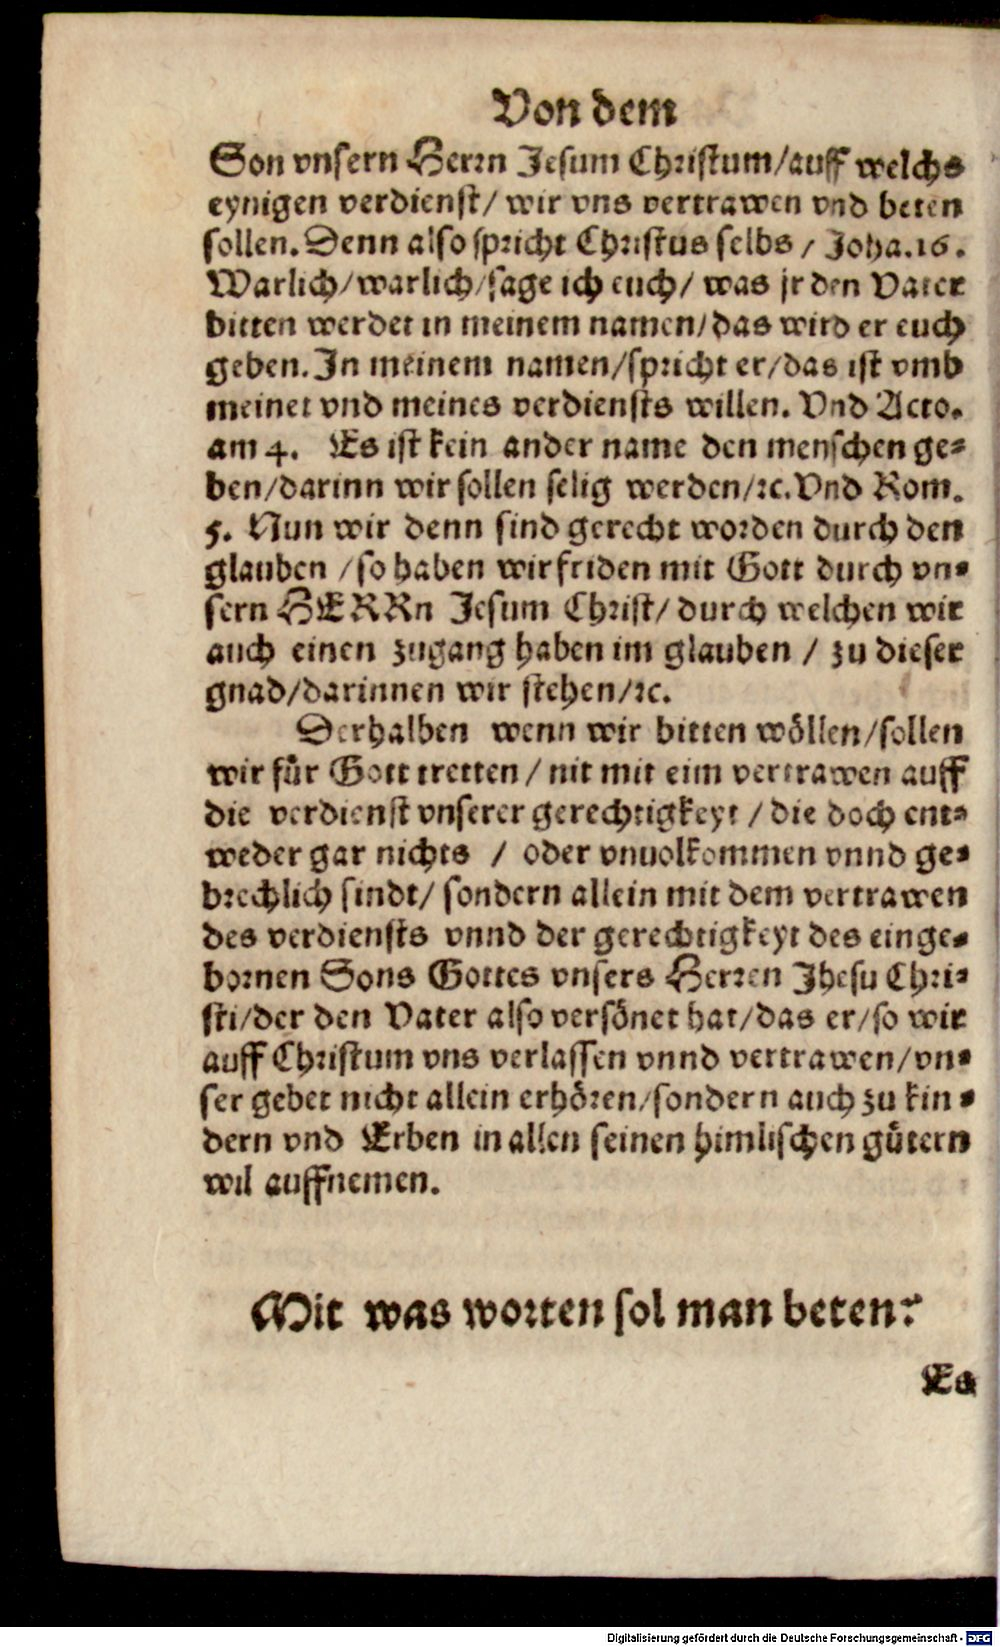 Von dem
Son vnsern Herrn Jesum Christum/auff welchs
eynigen verdienst/ wir vns vertrawen vnd beten
sollen. Denn also spricht Christus selbs / Joha.16.
Warlich/warlich/sage ich euch/ was jr den Vater
bitten werdet in meinem namen/das wird er euch
geben. In meinem namen/spricht er/das ist vmb
meinet vnd meines verdiensts willen. Vnd Acto.
am 4. Es ist kein ander name den menschen ge⸗
ben/darinn wir sollen selig werden/ꝛc. Vnd Rom.
5. Nun wir denn sind gerecht worden durch den
glauben /so haben wir friden mit Gott durch vn⸗
sern HERRn Jesum Christ/ durch welchen wir
auch einen zugang haben im glauben / zu dieser
gnad/darinnen wir stehen/ꝛc.
Derhalben wenn wir bitten wöllen/sollen
wir für Gott tretten / nit mit eim vertrawen auff
die verdienst vnserer gerechtigkeyt / die doch ent⸗
weder gar nichts / oder vnuolkommen vnnd ge⸗
brechlich sindt/ sondern allein mit dem vertrawen
des verdiensts vnnd der gerechtigkeyt des einge⸗
bornen Sons Gottes vnsers Herren Jhesu Chri⸗
sti/der den Vater also versönet hat/das er/so wir
auff Christum vns verlassen vnnd vertrawen/vn⸗
ser gebet nicht allein erhören/sondern auch zu kin⸗
dern vnd Erben in allen seinen himlischen gütern
wil auffnemen.
Mit was worten sol man beten?
Es
Digitalisierung gefördert durch die Deutsche Forschungsgemeinschaft - DFG